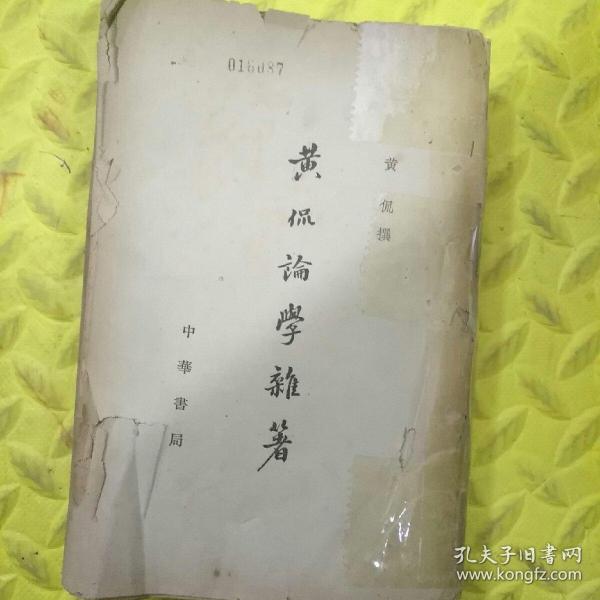 016087
黄侃撰
黄侃論學雜著
中華書局
孔夫子旧書网
www.kongfz.com